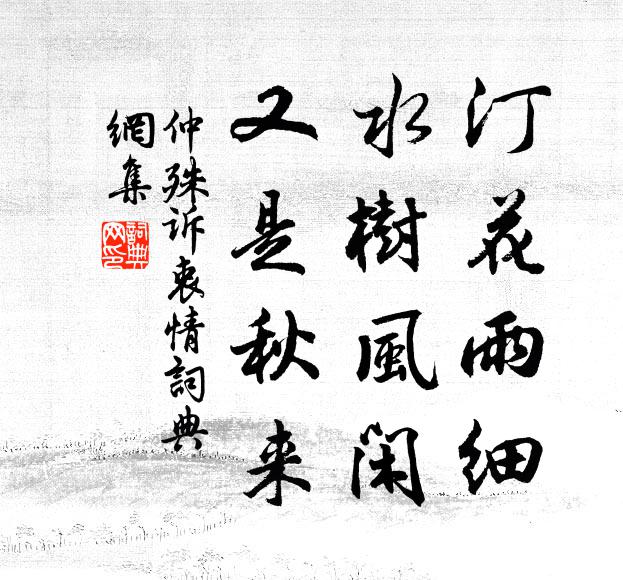 汀花雨細
水樹風閑
又是秋来
仲殊訴衷情詞典
網集
詞典
网印